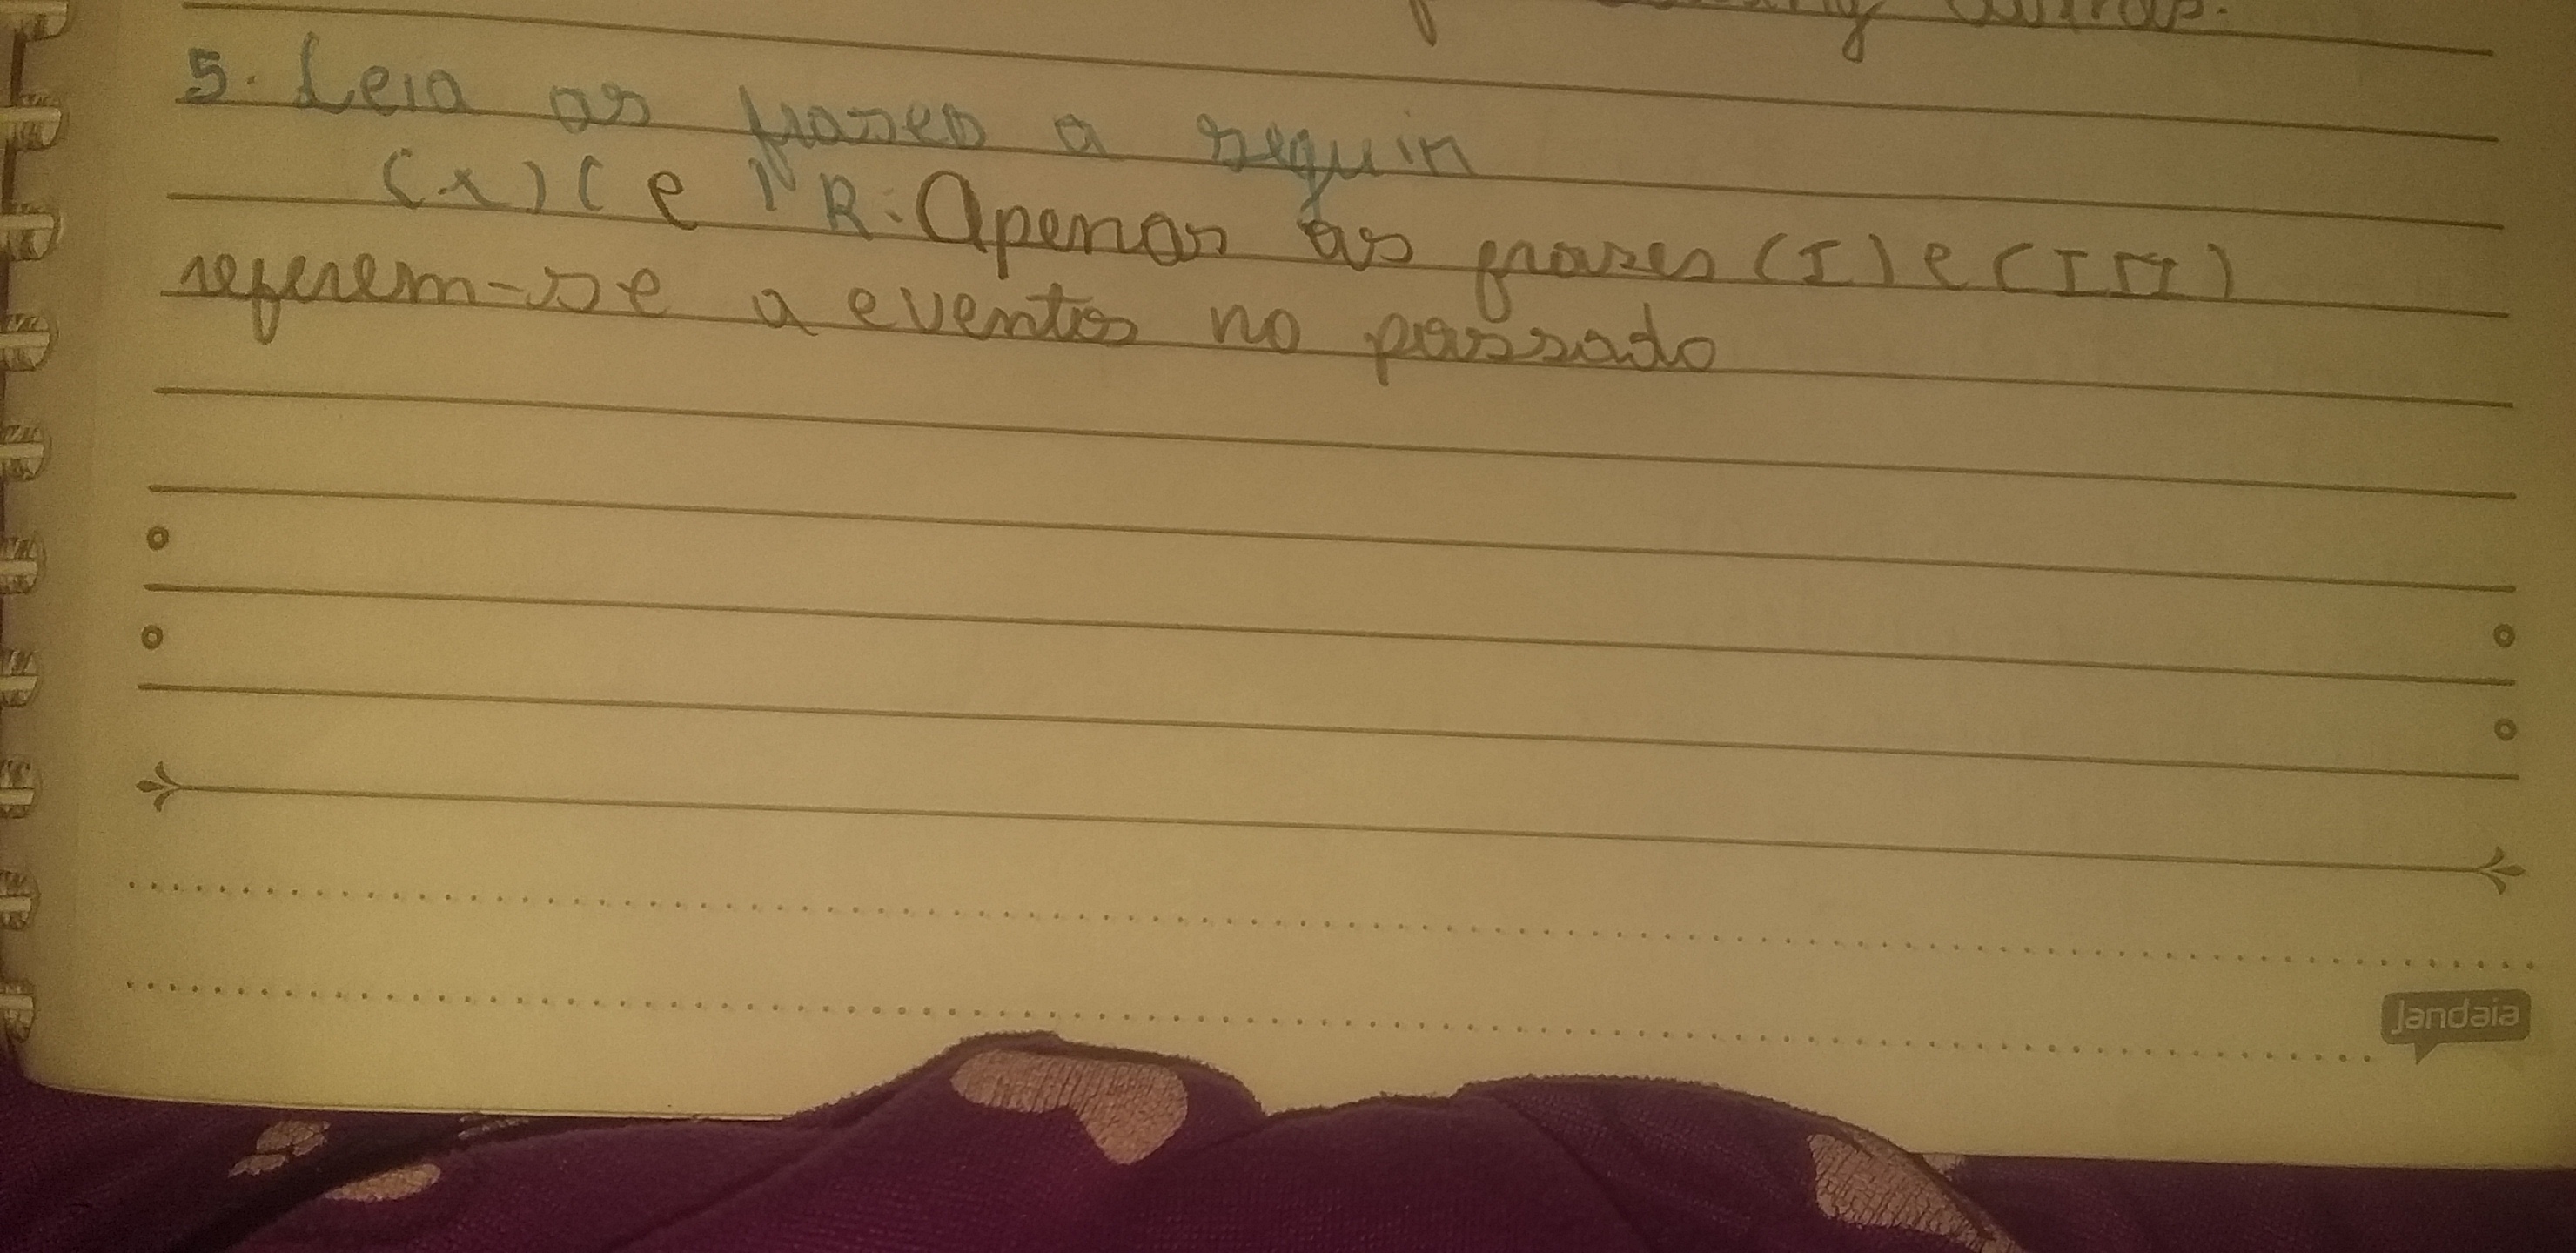 5. Leia as frases a seguir
(x) ( e ) R: Apenas as frases (I) e (III)
referem-se a eventos no passado
Jandaia